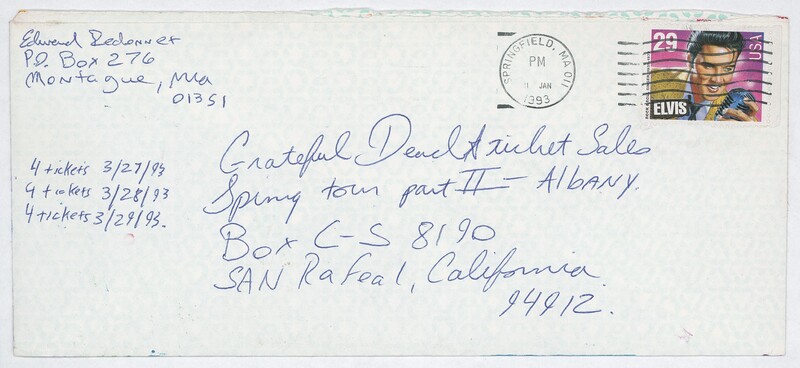 Edward Redonnet
P.O. Box 276
Montague, Ma
01351
SPRINGFIELD, MA 011
PM
11 JAN
1993
29
USA
ELVIS
4 tickets 3/27/93
4 tickets 3/28/93
4 tickets 3/29/93.
Grateful Dead ticket Sales
Spring tour part II - Albany.
Box C-S 8190
SAN Rafeal, California
94912.